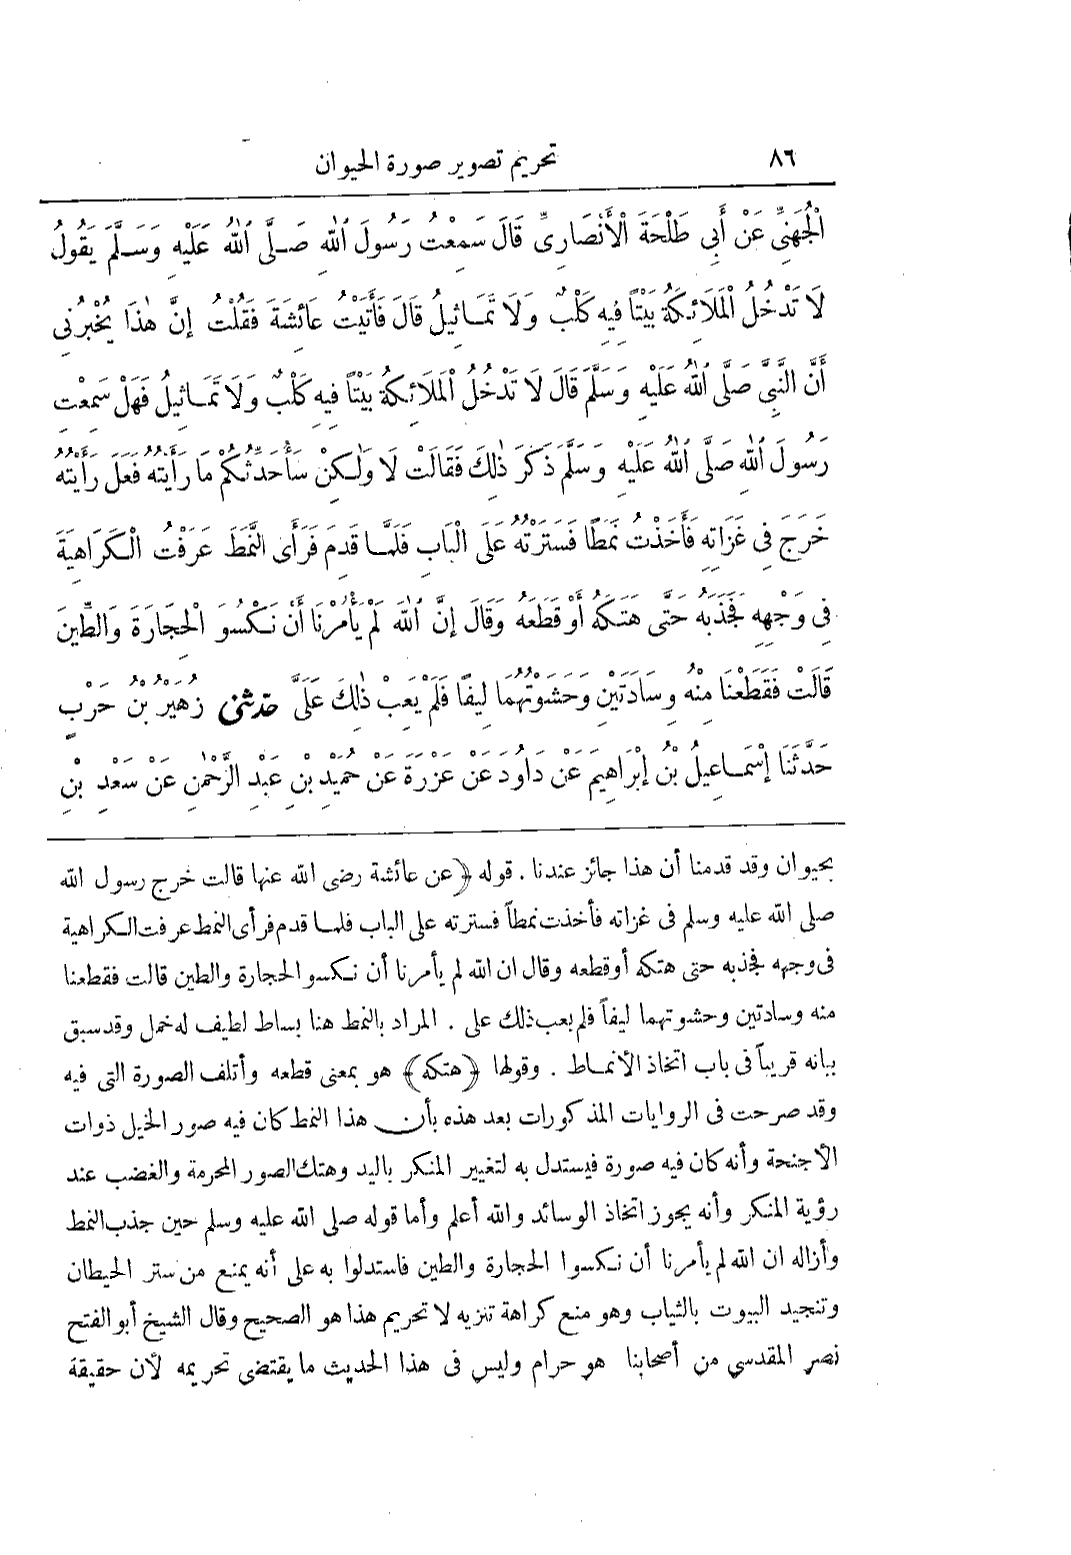 ٨٦ تحريم تصوير صورة الحيوان
الْجُهَنِيِّ عَنْ أَبِي طَلْحَةَ الْأَنْصَارِىِّ قَالَ سَمِعْتُ رَسُولَ اللهِ صَلَّى اللهُ عَلَيْهِ وَسَلَّمَ يَقُولُ
لَا تَدْخُلُ الْمَلَائِكَةُ بَيْتًا فِيهِ كَلْبٌ وَلَا تَمَاثِيلُ قَالَ فَأَتَيْتُ عَائِشَةَ فَقُلْتُ إِنَّ هٰذَا يُخْبِرُنِى
أَنَّ النَّبِىَّ صَلَّى اللهُ عَلَيْهِ وَسَلَّمَ قَالَ لَا تَدْخُلُ الْمَلَائِكَةُ بَيْتًا فِيهِ كَلْبٌ وَلَا تَمَاثِيلُ فَهَلْ سَمِعْتِ
رَسُولَ اللهِ صَلَّى اللهُ عَلَيْهِ وَسَلَّمَ ذَكَرَ ذٰلِكَ فَقَالَتْ لَا وَلٰكِنْ سَأُحَدِّثُكُمْ مَا رَأَيْتُهُ فَعَلَ رَأَيْتُهُ
خَرَجَ فِى غَزَاتِهِ فَأَخَذْتُ نَمَطًا فَسَتَرْتُهُ عَلَى الْبَابِ فَلَمَّا قَدِمَ فَرَأَى النَّمَطَ عَرَفْتُ الْكَرَاهِيَةَ
فِى وَجْهِهِ فَجَذَبَهُ حَتَّى هَتَكَهُ أَوْ قَطَعَهُ وَقَالَ إِنَّ اللهَ لَمْ يَأْمُرْنَا أَنْ نَكْسُوَ الْحِجَارَةَ وَالطِّينَ
قَالَتْ فَقَطَعْنَا مِنْهُ وِسَادَتَيْنِ وَحَشَوْتُهُمَا لِيفًا فَلَمْ يَعِبْ ذٰلِكَ عَلَىَّ حدثنى زُهَيْرُ بْنُ حَرْبٍ
حَدَّثَنَا إِسْمَاعِيلُ بْنُ إِبْرَاهِيمَ عَنْ دَاوُدَ عَنْ عَزْرَةَ عَنْ حُمَيْدِ بْنِ عَبْدِ الرَّحْمٰنِ عَنْ سَعْدِ بْنِ
بحيوان وقد قدمنا أن هذا جائز عندنا . قوله ﴿عن عائشة رضى الله عنها قالت خرج رسول الله
صلى الله عليه وسلم فى غزاته فأخذت نمطاً فسترته على الباب فلما قدم فرأى النمط عرفت الكراهية
فى وجهه فجذبه حتى هتكه أو قطعه وقال ان الله لم يأمرنا أن نكسو الحجارة والطين قالت فقطعنا
منه وسادتين وحشوتهما ليفاً فلم يعب ذلك على . المراد بالنمط هنا بساط لطيف له خمل وقد سبق
بيانه قريباً فى باب اتخاذ الأنماط . وقولها ﴿هتكه﴾ هو بمعنى قطعه وأتلف الصورة التى فيه
وقد صرحت فى الروايات المذكورات بعد هذه بأن هذا النمط كان فيه صور الخيل ذوات
الأجنحة وأنه كان فيه صورة فيستدل به لتغيير المنكر باليد وهتك الصور المحرمة والغضب عند
رؤية المنكر وأنه يجوز اتخاذ الوسائد والله أعلم وأما قوله صلى الله عليه وسلم حين جذب النمط
وأزاله ان الله لم يأمرنا أن نكسوا الحجارة والطين فاستدلوا به على أنه يمنع من ستر الحيطان
وتنجيد البيوت بالثياب وهو منع كراهة تنزيه لا تحريم هذا هو الصحيح وقال الشيخ أبو الفتح
نصر المقدسي من أصحابنا هو حرام وليس فى هذا الحديث ما يقتضى تحريمه لأن حقيقة